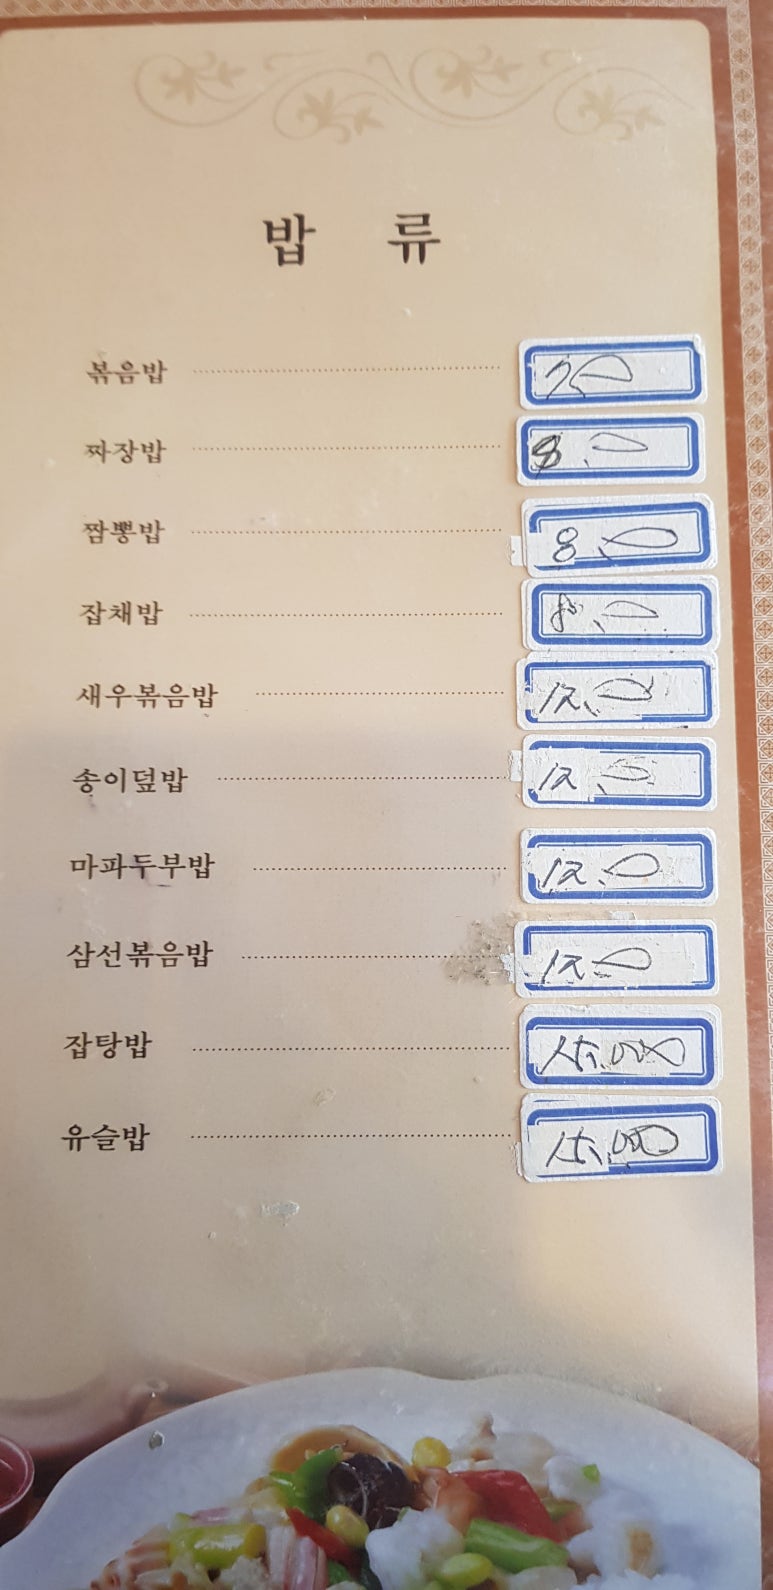 밥 류
볶음밥 7,0
짜장밥 8,0
짬뽕밥 8,0
잡채밥 8,0
새우볶음밥 12,0
송이덮밥 12,0
마파두부밥 12,0
삼선볶음밥 12,0
잡탕밥 15,000
유슬밥 15,000